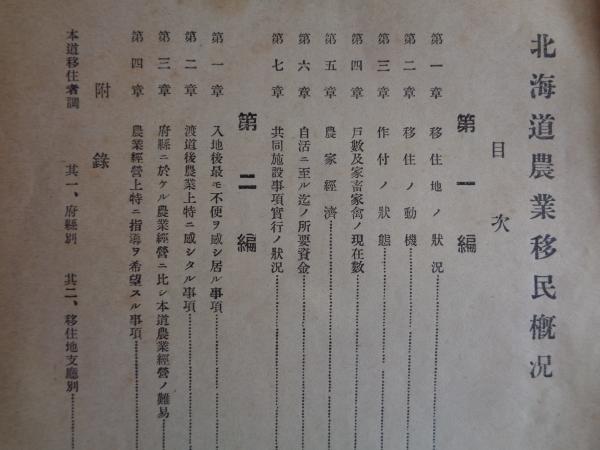 北海道農業移民概况
目次
第一編
第一章 移住地ノ狀況
第二章 移住ノ動機
第三章 作付ノ狀態
第四章 戸數及家畜家禽ノ現在數
第五章 農家經濟
第六章 自活ニ至ル迄ノ所要資金
第七章 共同施設事項實行ノ狀況
第二編
第一章 入地後最モ不便ヲ感シ居ル事項
第二章 渡道後農業上特ニ感シタル事項
第三章 府縣ニ於ケル農業經營ニ比シ本道農業經營ノ難易
第四章 農業經營上特ニ指導ヲ希望スル事項
附錄
本道移住者調 其一、府縣別 其二、移住地支廳別